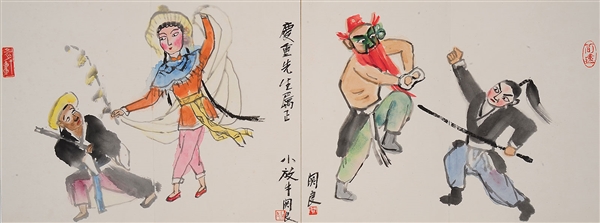 慶重先生屬正
小放牛 関良
関良